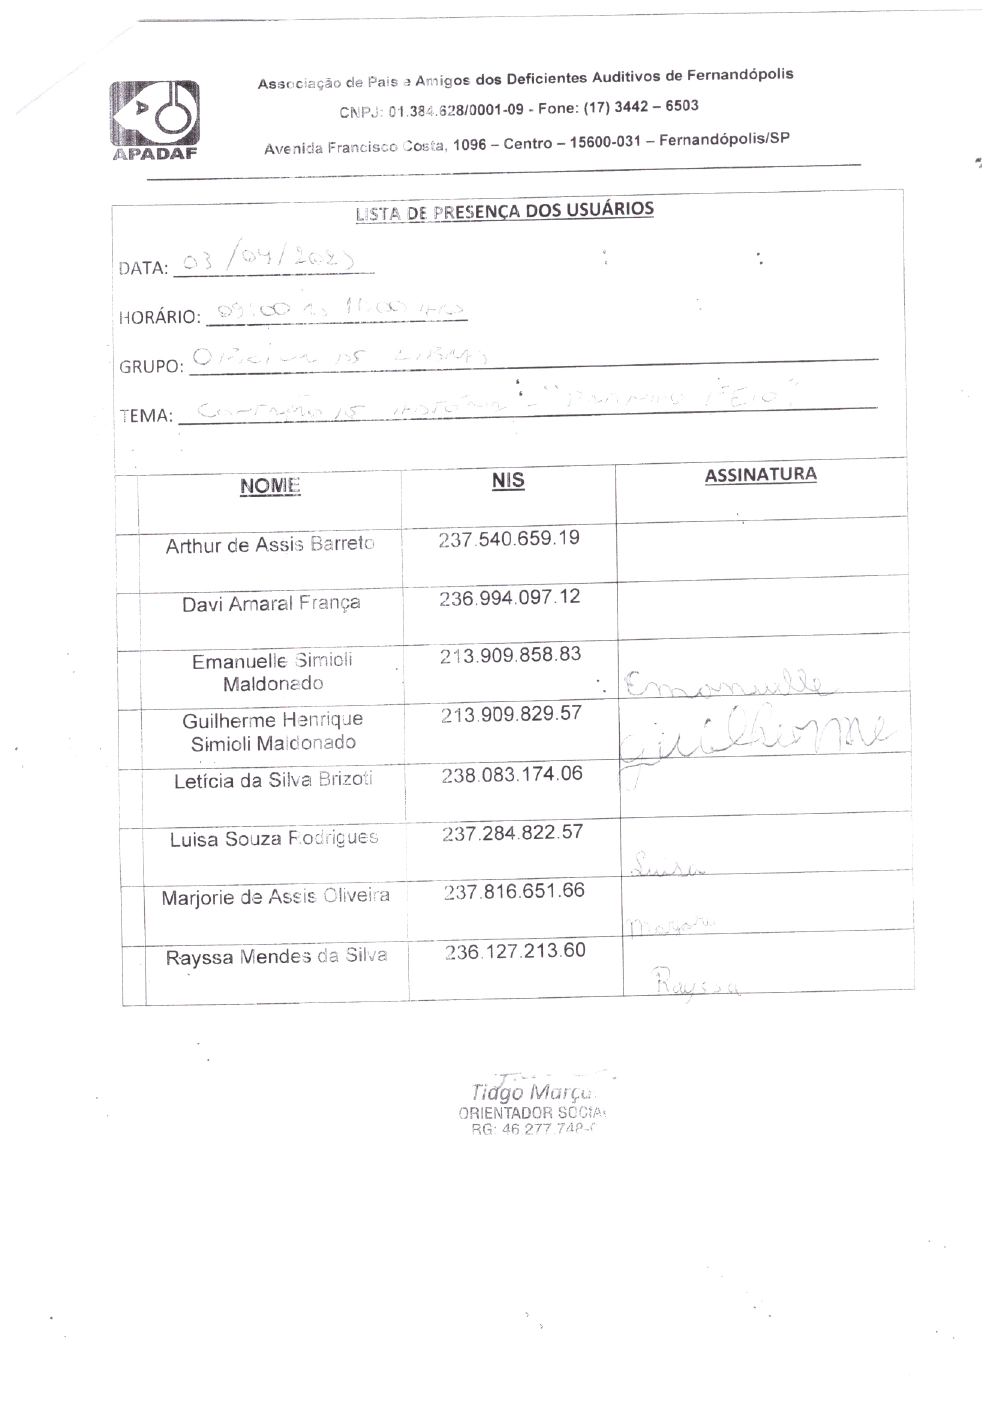 Associação de Pais e Amigos dos Deficientes Auditivos de Fernandópolis
CNPJ: 01.384.628/0001-09 - Fone: (17) 3442 – 6503
Avenida Francisco Costa, 1096 – Centro – 15600-031 – Fernandópolis/SP
APADAF
LISTA DE PRESENÇA DOS USUÁRIOS
DATA: 03/04/2023
HORÁRIO: 09:00 às 11:00 hrs
GRUPO: Oficina de Libras
TEMA: Contação de história - "
NOME NIS ASSINATURA
Arthur de Assis Barreto 237.540.659.19
Davi Amaral França 236.994.097.12
Emanuelle Simioli
Maldonado 213.909.858.83 Emanuelle
Guilherme Henrique
Simioli Maldonado 213.909.829.57 Guilherme
Letícia da Silva Brizoti 238.083.174.06
Luisa Souza Rodrigues 237.284.822.57 Luisa
Marjorie de Assis Oliveira 237.816.651.66
Rayssa Mendes da Silva 236.127.213.60 Rayssa
Tiago
ORIENTADOR SOCIAL
RG: 46 277 748-